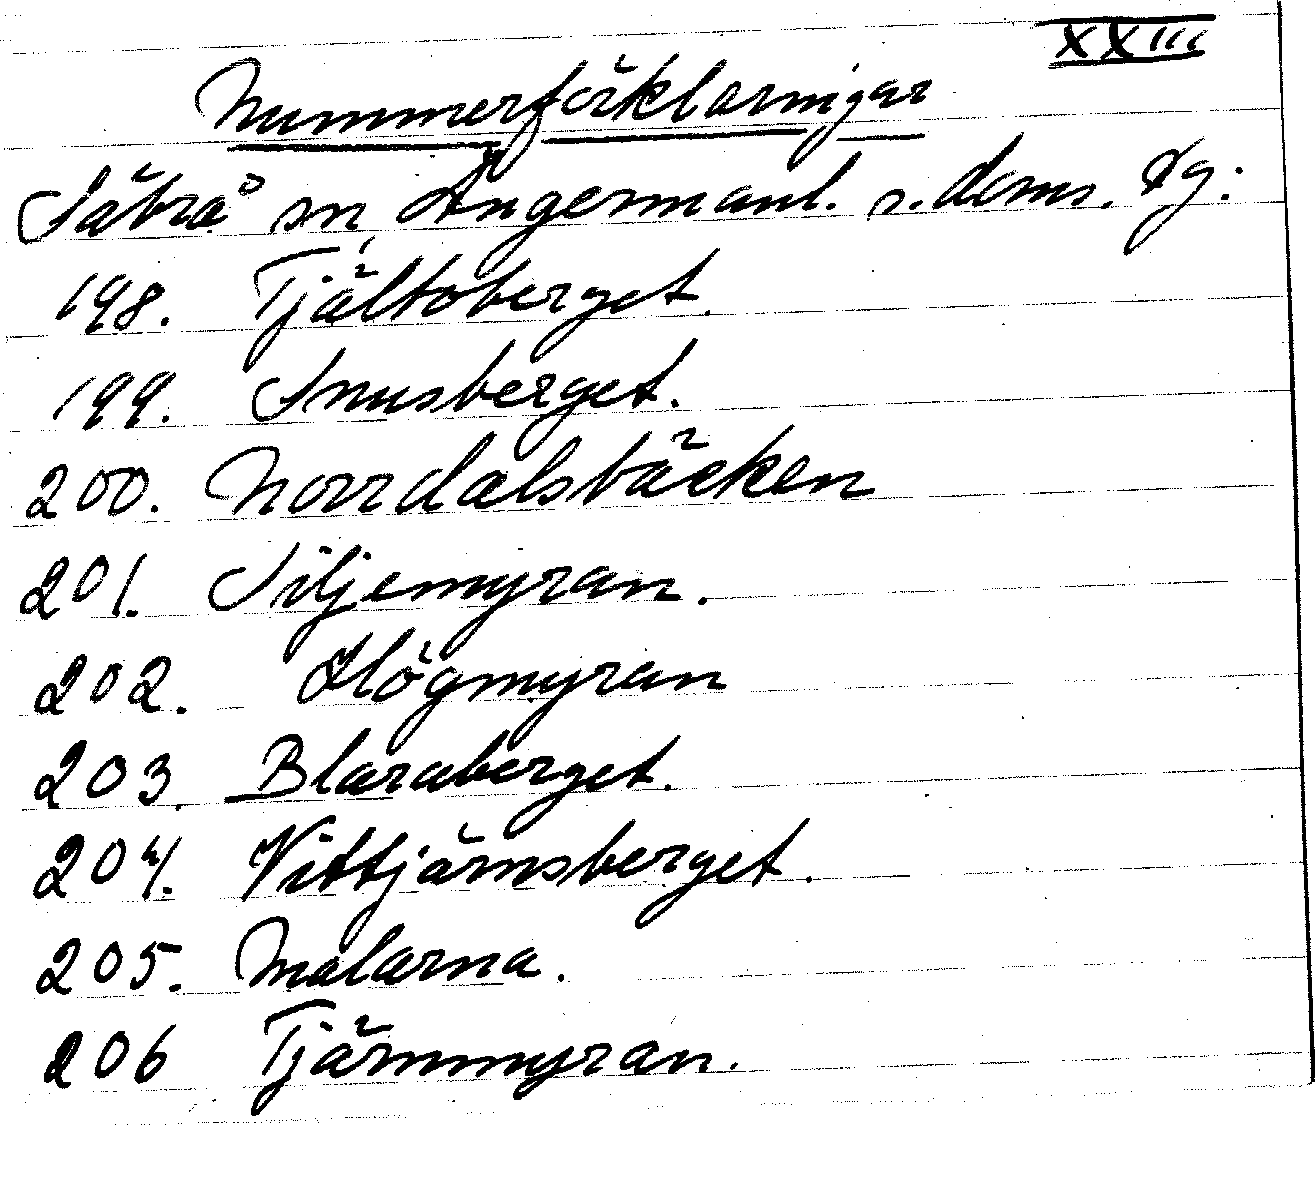 XXIII
Nummerförklaringar
Säbrå sn, Ångermanl. s. doms. dg:
198. Tjältoberget.
199. Snusberget.
200. Norrdalsbäcken
201. Siljemyran.
202. Högmyran
203. Blaraberget.
204. Vittjärnsberget.
205. Malarna.
206 Tjärnmyran.